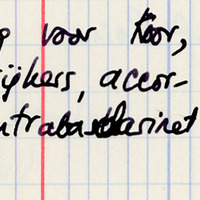 voor koor,
ijkers, accor-
ntrabasklarinet